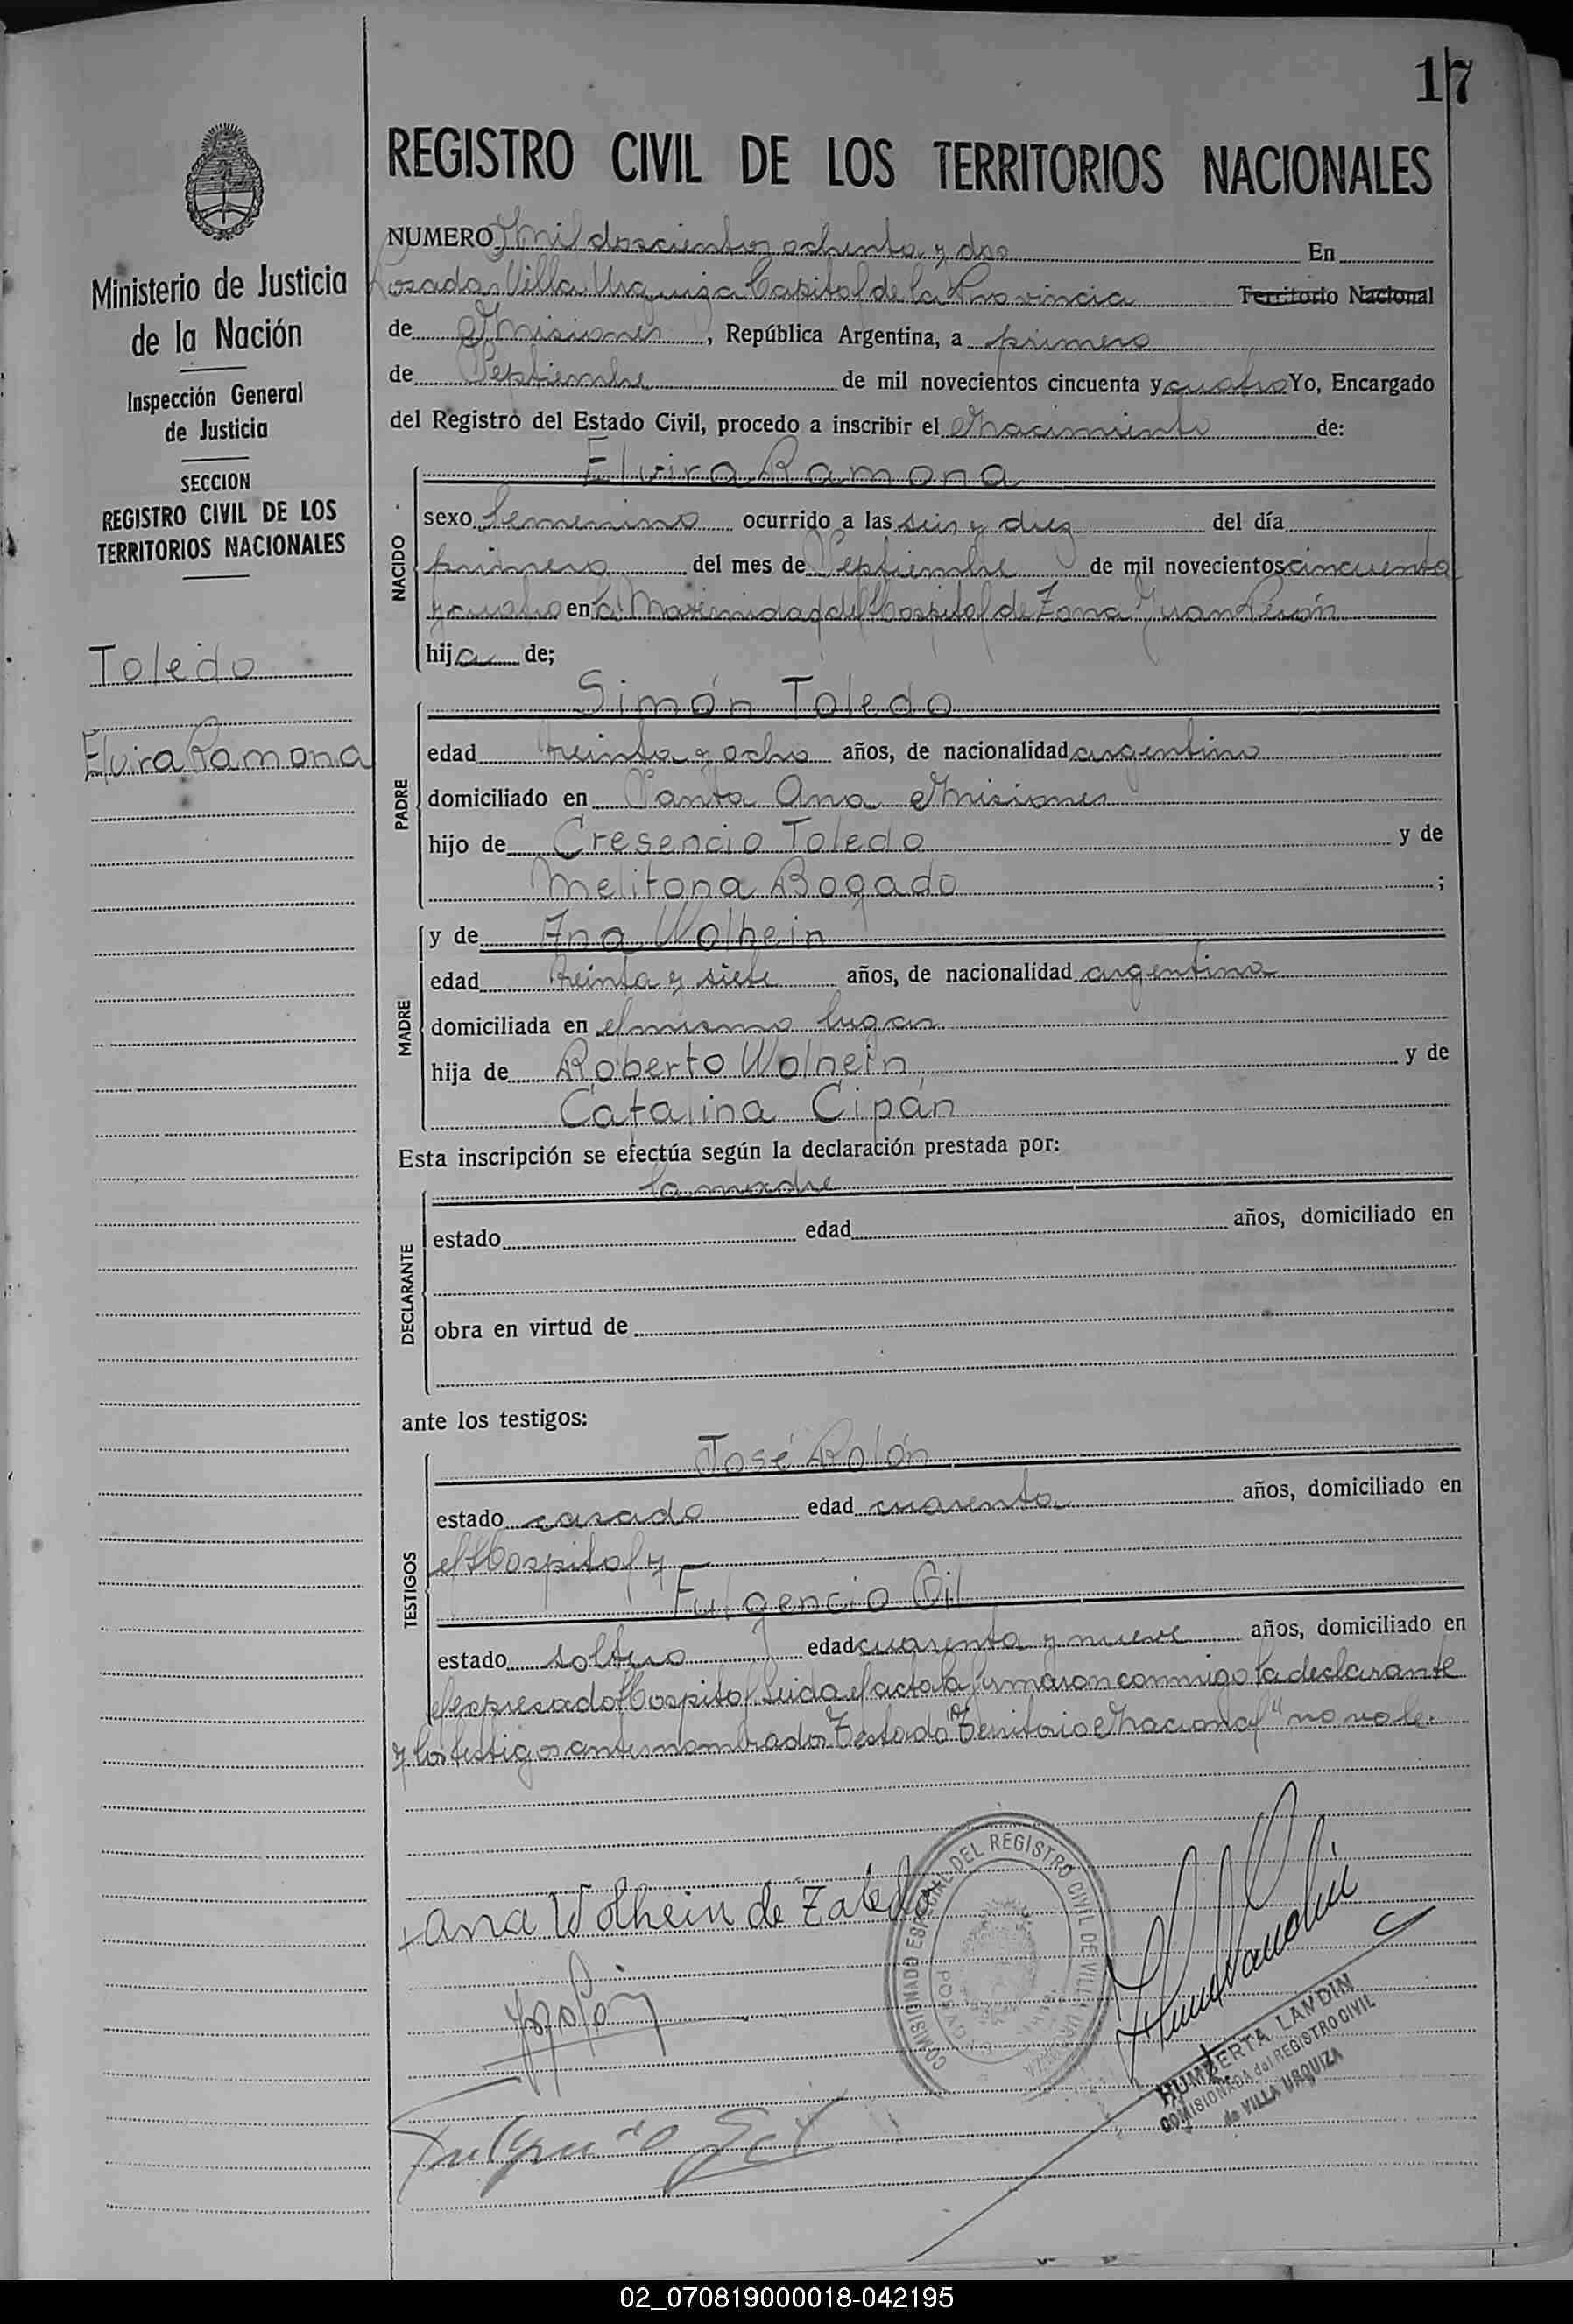 17
REGISTRO CIVIL DE LOS TERRITORIOS NACIONALES
Ministerio de Justicia
de la Nación
Inspección General
de Justicia
SECCION
REGISTRO CIVIL DE LOS
TERRITORIOS NACIONALES
Toledo
Elvira Ramona
NUMERO Mil doscientos ochenta y dos En
Posadas Villa Urquiza Capital de la Provincia Territorio Nacional
de Misiones, República Argentina, a primero
de Septiembre de mil novecientos cincuenta y cuatro Yo, Encargado
del Registro del Estado Civil, procedo a inscribir el Nacimiento de:
NACIDO
Elvira Ramona
sexo femenino ocurrido a las seis y diez del día
primero del mes de Septiembre de mil novecientos cincuenta
y cuatro en la Maternidad del Hospital de Zona Juan Perón
hija de;
PADRE
Simón Toledo
edad treinta y ocho años, de nacionalidad argentino
domiciliado en Santa Ana Misiones
hijo de Cresencio Toledo y de
Melitona Bogado ;
MADRE
y de Ana Wolhein
edad treinta y siete años, de nacionalidad argentina
domiciliada en el mismo lugar
hija de Roberto Wolhein y de
Catalina Cipán
Esta inscripción se efectúa según la declaración prestada por:
DECLARANTE
la madre
estado edad años, domiciliado en
obra en virtud de
ante los testigos:
TESTIGOS
José Rolón
estado casado edad cuarenta años, domiciliado en
el Hospital y
Fulgencio Gil
estado soltero edad cuarenta y nueve años, domiciliado en
el expresado Hospital. Leida el acta la firmaron conmigo la declarante
y los testigos antes nombrados. Testado "Territorio Nacional" no vale.
+ Ana Wolhein de Zaledo
COMISIONADO ESPECIAL DEL REGISTRO CIVIL DE VILLA URQUIZA
Fulgencio Gil
HUMBERTA LANDIN
COMISIONADA del REGISTRO CIVIL
de VILLA URQUIZA
02_070819000018-042195